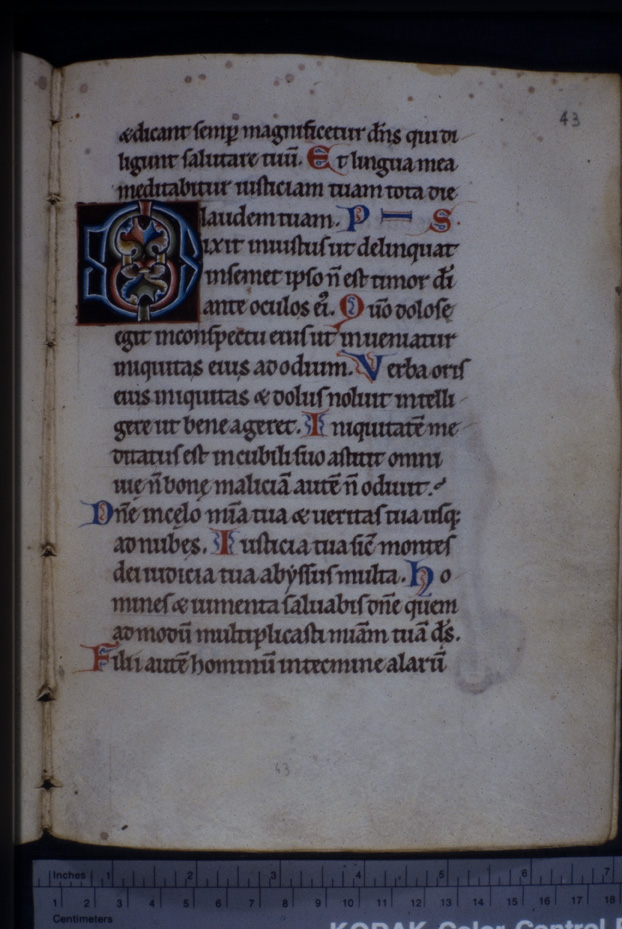 43
& dicant semp̲ magnificetur dn̄s qui di
ligunt salutare tuū. Et lingua mea
meditabitur iusticiam tuam tota die
laudem tuam. P S.
Dixit iniustus ut delinquat
in semet ipso n̄ est timor dī
ante oculos ei᷒. Qūo dolose
egit in conspectu eius ut inueniatur
iniquitas eius ad odium. Verba oris
eius iniquitas & dolus noluit intelli
gere ut bene ageret. Iniquitatē me
ditatus est in cubili suo astitit omni
uię n̄ bonę maliciā autē n̄ odiuit.
Dn̄e in cęlo mīa tua & ueritas tua usq;
ad nubes. Iusticia tua sic̄ montes
dei iudicia tua abyssus multa. Ho
mines & iumenta saluabis dn̄e quem
admodū multiplicasti mīam tuā d̄s.
Filii autē hominū in tecmine alarū
43
Inches 1 2 3 4 5 6 7
1 2 3 4 5 6 7 8 9 10 11 12 13 14 15 16 17 18
Centimeters
KODAK Color Control